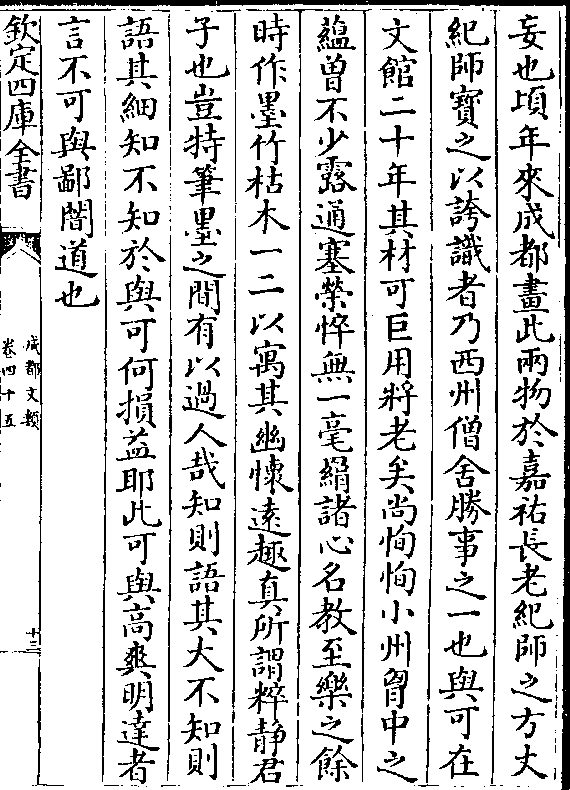 妄也頃年來成都畫此兩物於嘉祐長老紀師之方丈
紀師寶之以誇識者乃西州僧舍勝事之一也與可在
文館二十年其材可巨用將老矣尚恂恂小州胷中之
蘊曾不少露通塞榮悴無一毫縎諸心名教至樂之餘
時作墨竹枯木一二以寓其幽懷遠趣真所謂粹静君
子也豈特筆墨之間有以過人哉知則語其大不知則
語其細知不知於與可何損益耶此可與高爽明達者
言不可與鄙闇道也
欽定四庫全書
成都文類
卷四十五
十三